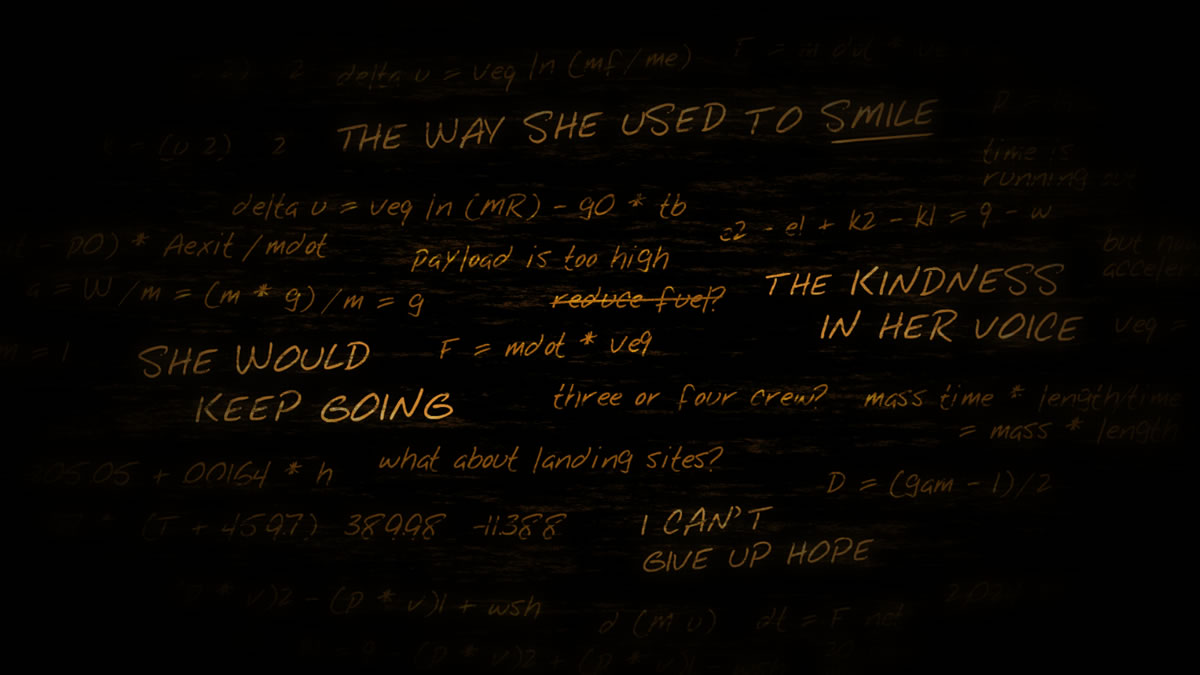 delta u = veq ln (mf/me)
THE WAY SHE USED TO SMILE
time is
running out
delta u = veq ln (MR) - g0 * tb
e2 - e1 + k2 - k1 = q - w
p0) * Aexit/mdot
payload is too high
but
a = W/m = (m * g)/m = g
reduce fuel?
THE KINDNESS
IN HER VOICE
veq =
= 1
SHE WOULD
KEEP GOING
F = mdot * veq
three or four crew?
mass time * length/time
= mass * length
what about landing sites?
+ .00164 * h
D = (gam - 1)/2
(T + 459.7) 389.98 -11.388
I CAN'T
GIVE UP HOPE
* v)2 - (p * v)1 + wsh
d (m u) dt = F net
(p * v)2 + (p * v)1 - wsh